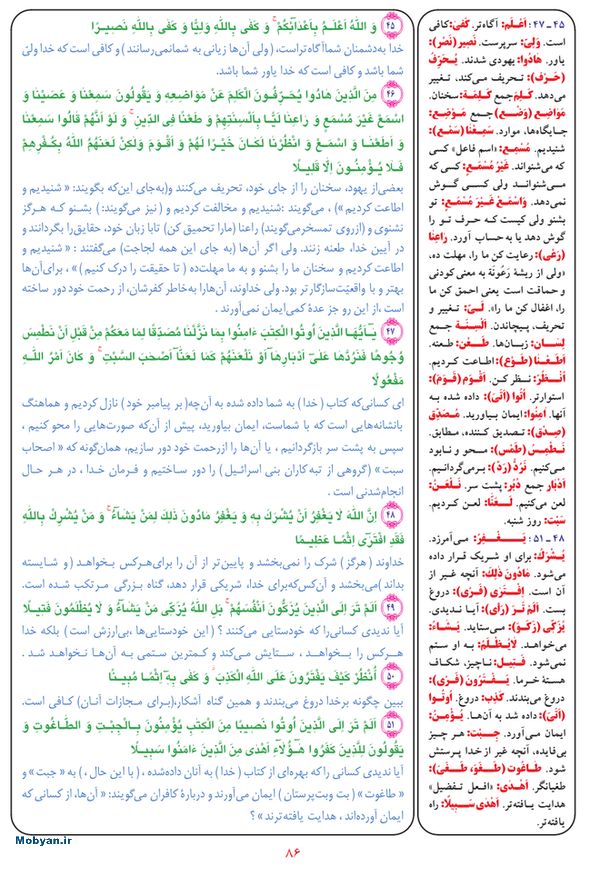 ۴۵ وَ اللهُ اَعْلَمُ بِاَعْدآئِکُمْ ۚ وَ کَفی بِاللهِ وَلِیًّا وَ کَفی بِاللهِ نَصیرًا
خدا به‌دشمنان شماآگاه‌تراست، ( ولی آن‌ها زیانی به شمانمی‌رسانند ) و کافی است که خدا ولیّ
شما باشد و کافی است که خدا یاور شما باشد.
۴۶ مِنَ الَّذینَ هادُوا یُحَرِّفُونَ الْکَلِمَ عَنْ مَواضِعِهِ وَ یَقُولُونَ سَمِعْنا وَ عَصَیْنا وَ
اسْمَعْ غَیْرَ مُسْمَعٍ وَ راعِنا لَیًّا بِاَلْسِنَتِهِمْ وَ طَعْنًا فِی الدّینِ ۚ وَ لَوْ اَنَّهُمْ قالُوا سَمِعْنا
وَ اَطَعْنا وَ اسْمَعْ وَ انْظُرْنا لَکانَ خَیْرًا لَهُمْ وَ اَقْوَمَ وَلکِنْ لَعَنَهُمُ اللهُ بِکُفْرِهِمْ
فَلا یُؤْمِنُونَ اِلّا قَلیلًا
بعضی‌از یهود، سخنان را از جای خود، تحریف می‌کنند و(به‌جای این‌که بگویند: « شنیدیم و
اطاعت کردیم» ) ، می‌گویند :شنیدیم و مخالفت کردیم و ( نیز می‌گویند:) بشنو که هرگز
نشنوی و (ازروی تمسخرمی‌گویند) راعنا (مارا تحمیق کن) تابا زبان خود، حقایق‌را بگردانند و
در آیین خدا، طعنه زنند. ولی اگر آن‌ها (به جای این همه لجاجت) می‌گفتند : « شنیدیم و
اطاعت کردیم و سخنان ما را بشنو و به ما مهلت‌ده ( تا حقیقت را درک کنیم ) » ، برای‌آن‌ها
بهتر و با واقعیّت‌سازگارتر بود. ولی خداوند، آن‌هارا به‌خاطر کفرشان، از رحمت خود دور ساخته
است ،از این رو جز عدۀ کمی‌ایمان نمی‌آورند .
۴۷ یا اَیُّهَا الَّذینَ اُوتُوا الْکِتبَ ءامِنُوا بِما نَزَّلْنا مُصَدِّقًا لِما مَعَکُمْ مِنْ قَبْلِ اَنْ نَطْمِسَ
وُجُوهًا فَنَرُدَّها عَلی اَدْبارِها اَوْ نَلْعَنَهُمْ کَما لَعَنّا اَصْحبَ السَّبْتِ ۚ وَ کانَ اَمْرُ اللهِ
مَفْعُولًا
ای کسانی‌که کتاب ( خدا ) به شما داده شده به آن‌چه( بر پیامبر خود ) نازل کردیم و هماهنگ
بانشانه‌هایی است که با شماست، ایمان بیاورید، پیش از آن‌که صورت‌هایی را محو کنیم ،
سپس به پشت سر بازگردانیم ، یا آن‌ها را ازرحمت خود دور سازیم، همان‌گونه که « اصحاب
سبت » (گروهی از تبه‌کاران بنی اسرائیل ) را دور ساختیم و فرمان خدا ، در هر حال
انجام‌شدنی است .
۴۸ اِنَّ اللهَ لا یَغْفِرُ اَنْ یُشْرَکَ بِهِ وَ یَغْفِرُ مادُونَ ذلِکَ لِمَنْ یَشآءُ ۚ وَ مَنْ یُشْرِکْ بِاللهِ
فَقَدِ افْتَری اِثْمًا عَظیمًا
خداوند (هرگز) شرک را نمی‌بخشد و پایین‌تر از آن را برای‌هرکس بخواهد ( و شایسته
بداند )می‌بخشد و آن‌کس‌که‌برای خدا، شریکی قرار دهد، گناه بزرگی مرتکب شده است.
۴۹ اَلَمْ تَرَ اِلَی الَّذینَ یُزَکُّونَ اَنْفُسَهُمْ ۚ بَلِ اللهُ یُزَکّی مَنْ یَشآءُ وَ لا یُظْلَمُونَ فَتیلًا
آیا ندیدی کسانی‌را که خودستایی می‌کنند ؟ ( این خودستایی‌ها ،بی‌ارزش است) بلکه خدا
هرکس را بخواهد ، ستایش می‌کند و کمترین ستمی به آن‌ها نخواهد شد .
۵۰ اُنْظُرْ کَیْفَ یَفْتَرُونَ عَلَی اللهِ الْکَذِبَ ۖ وَ کَفی بِهِ اِثْمًا مُبینًا
ببین چگونه برخدا دروغ می‌بندند و همین گناه آشکار،(برای مجازات آنان) کافی است.
۵۱ اَلَمْ تَرَ اِلَی الَّذینَ اُوتُوا نَصیبًا مِنَ الْکِتبِ یُؤْمِنُونَ بِالْجِبْتِ وَ الطّاغُوتِ وَ
یَقُولُونَ لِلَّذینَ کَفَرُوا هؤُلاءِ اَهْدی مِنَ الَّذینَ ءامَنُوا سَبیلًا
آیا ندیدی کسانی راکه بهره‌ای از کتاب ( خدا ) به آنان داده‌شده ، ( با این حال ، ) به « جبت » و
« طاغوت » ( بت وبت‌پرستان ) ایمان می‌آورند و دربارۀ کافران می‌گویند: « آن‌ها، از کسانی که
ایمان آورده‌اند ، هدایت یافته‌ترند » ؟
۴۵ ـ ۴۷ : اَعْلَم: آگاه‌تر. کَفی: کافی
است. وَلِیّ: سرپرست. نَصیر (نَصْر):
یاور. هادُوا: یهودی شدند. یُحَرِّفُ
(حَرَّفَ): تحریف می‌کند، تغییر
می‌دهد. کَلِم جمع کَلِمَة: سخنان.
مَواضِع (وَضَعَ) جمع مَوْضِع:
جایگاه‌ها، موارد. سَمِعْنا (سَمِعَ):
شنیدیم. مُسْمَع: «اسم فاعل» کسی
که می‌شنواند. غَیْرَ مُسْمَع: کسی که
می‌شنواند ولی کسی گوش
نمی‌دهد. وَاسْمَعْ غَیْرَ مُسْمَع: تو
بشنو ولی کیست که حرف تو را
گوش دهد یا به‌حساب آورد. راعِنا
(رَعَی): رعایت کن ما را، مهلت ده،
«ولی از ریشۀ رَعُونَة به معنی کودنی
و حماقت است یعنی احمق کن ما
را، اغفال کن ما را». لَیّ: تغییر و
تحریف، پیچاندن. اَلْسِنَة جمع
لِسان: زبان‌ها. طَعْن: طعنه.
اَطَعْنا (طَوَعَ): اطاعت کردیم.
اُنْظُرْ: نظر کن. اَقْوَم (قَوَمَ):
استوارتر. اُتُوا (اَتَیَ): داده شده به
آنها. اٰمِنُوا: ایمان بیاورید. مُصَدِّق
(صِدْق): تصدیق کننده، مطابق.
نَطْمِسُ (طَمَسَ): محو و نابود
می‌کنیم. نَرُدُّ (رَدَّ): برمی‌گردانیم.
اَدْبار جمع دُبُر: پشت سر. نَلْعَنُ:
لعن می‌کنیم. لَعَنّا: لعن کردیم.
سَبْت: روز شنبه.
۴۸ ـ ۵۱ : یَغْفِرُ: می‌آمرزد.
یُشْرَکُ: برای او شریک قرار داده
می‌شود. مادُونَ ذلِکَ: آنچه غیر از
آن است. اِفْتَری (فَرَیَ): دروغ
بست. اَلَمْ تَرَ (رَأَیَ): آیا ندیدی.
یُزَکّی (زَکَوَ): می‌ستاید. یَشاءُ:
می‌خواهد. لایُظْلَمُ: به او ستم
نمی‌شود. فَتیل: ناچیز، شکاف
هستۀ خرما. یَفْتَرُونَ (فَرَیَ):
دروغ می‌بندند. کَذِب: دروغ. اُوتُوا
(اَتَیَ): داده شد به آن‌ها. یُؤْمِنُ:
ایمان می‌آورد. جِبْت: هر چیز
بی‌فایده، آنچه غیر از خدا پرستش
شود. طاغُوت (طَغَوَ، طَغَیَ):
طغیانگر. اَهْدی: «افعل تفضیل»
هدایت یافته‌تر. اَهْدی سَبیلًا: راه
یافته‌تر.
Mobyan.ir
۸۶